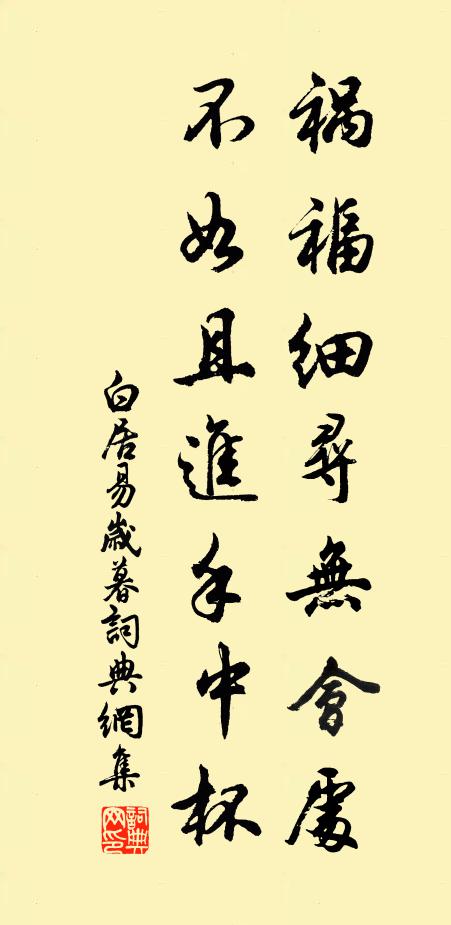 禍福細尋無會處
不如且進手中杯
白居易歲暮詞典網集
詞典网印